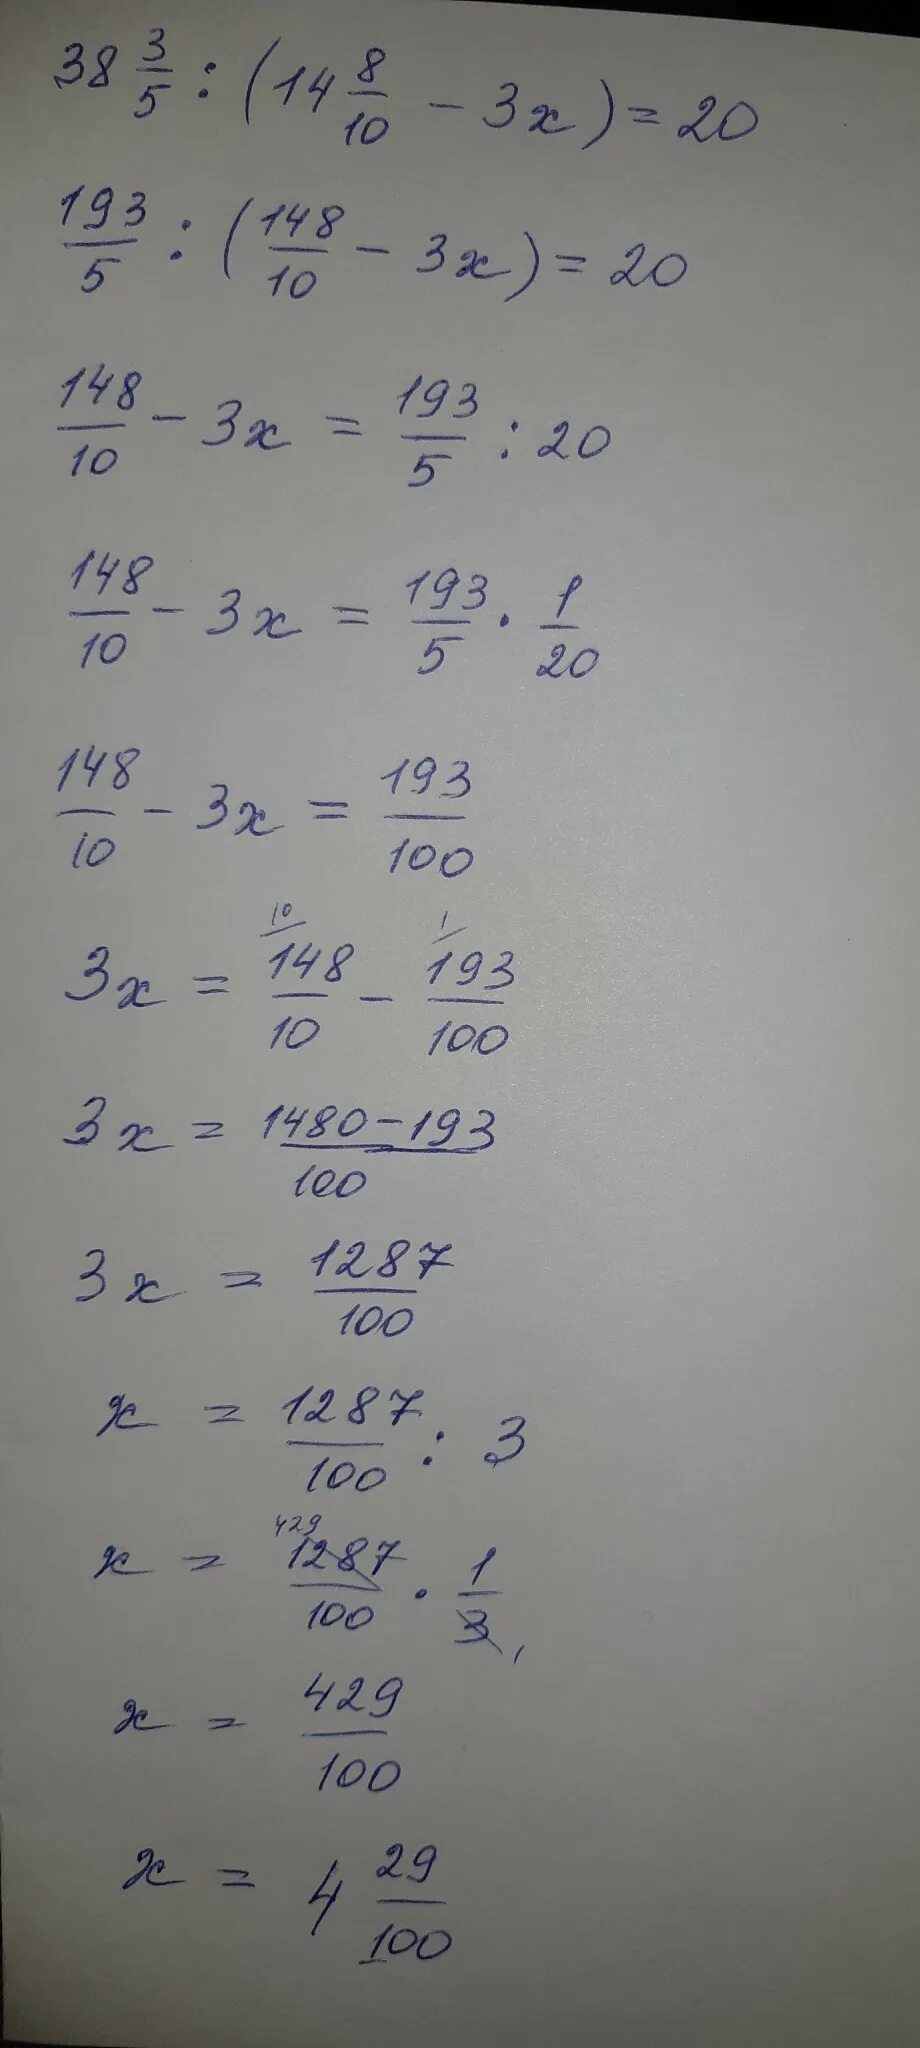 38 3/5 : (14 8/10 - 3x) = 20
193/5 : (148/10 - 3x) = 20
148/10 - 3x = 193/5 : 20
148/10 - 3x = 193/5 · 1/20
148/10 - 3x = 193/100
10 1
3x = 148/10 - 193/100
3x = 1480-193/100
3x = 1287/100
x = 1287/100 : 3
429
x = 1287/100 · 1/3 1
x = 429/100
x = 4 29/100